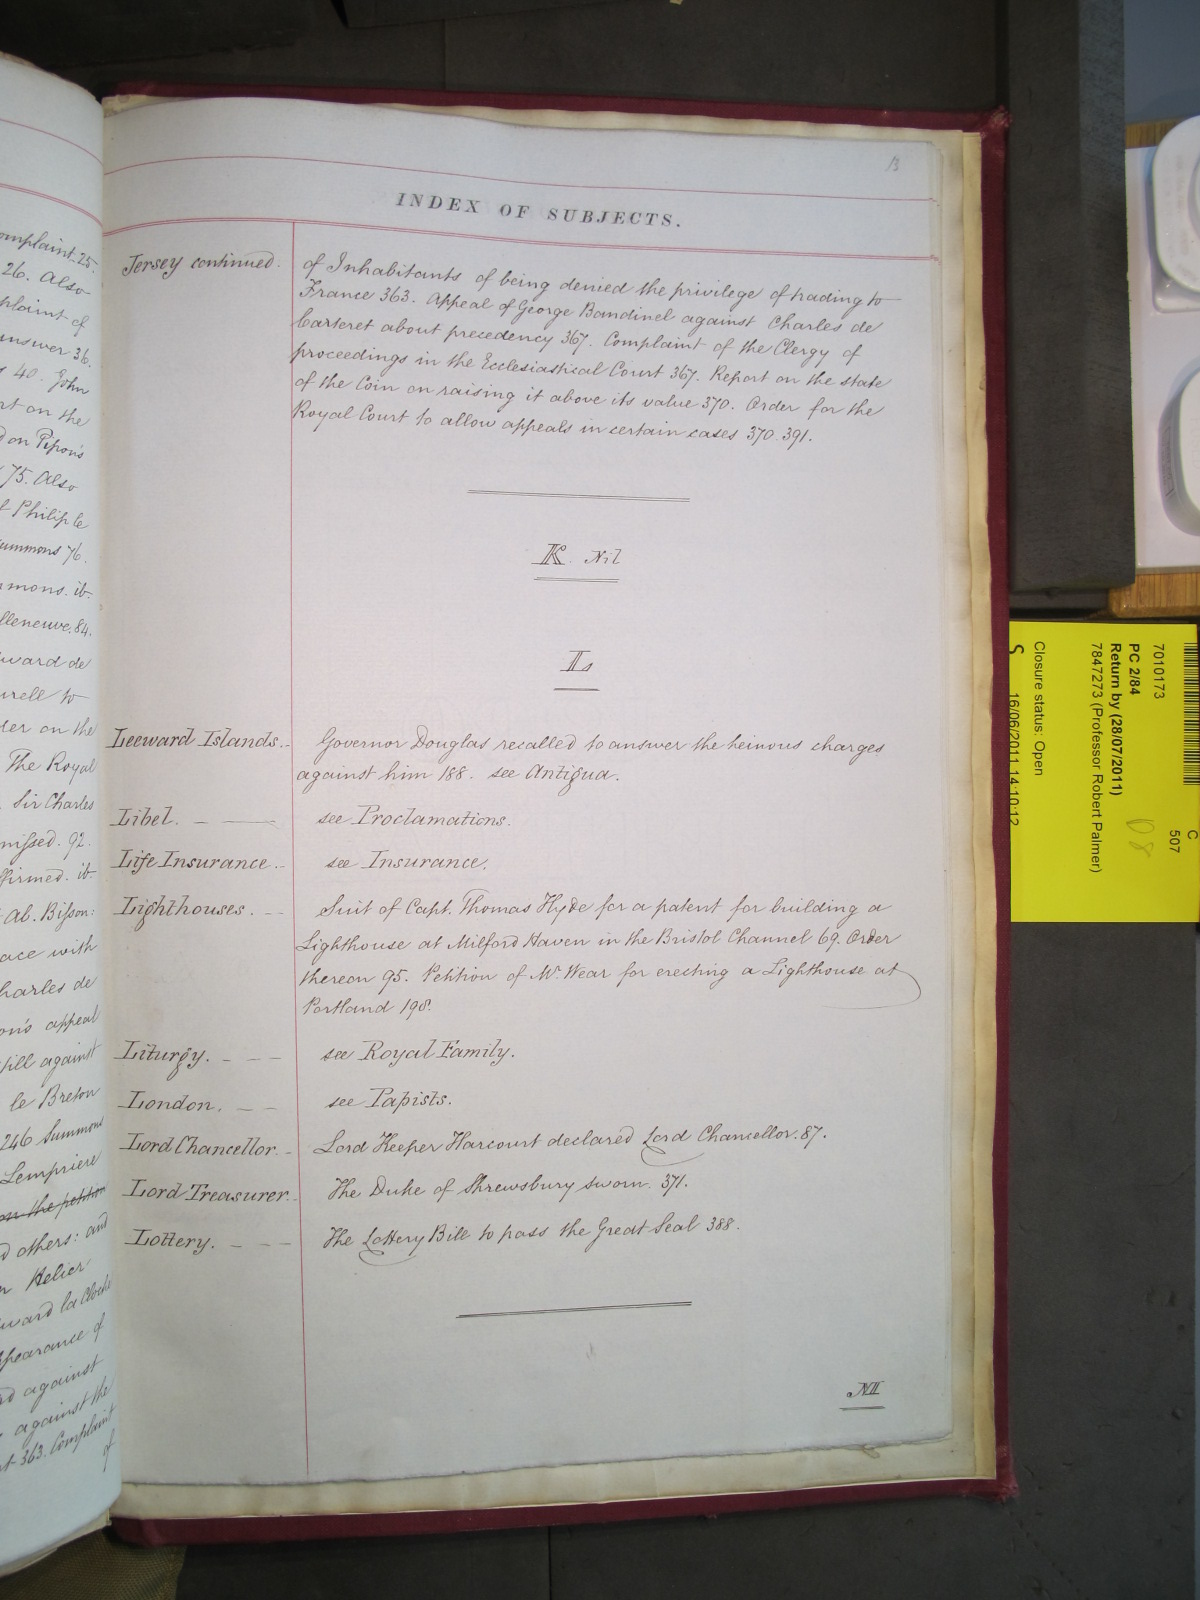 13
INDEX OF SUBJECTS.
Jersey continued.
of Inhabitants of being denied the privilege of trading to
France 363. Appeal of George Bandinel against Charles de
Carteret about precedency 367. Complaint of the Clergy of
proceedings in the Ecclesiastical Court 367. Report on the state
of the Coin on raising it above its value 370. Order for the
Royal Court to allow appeals in certain cases 370. 391.
K. Nil
L
Leeward Islands. Governor Douglas recalled to answer the heinous charges
against him 188. see Antigua.
Libel. see Proclamations.
Life Insurance. see Insurance.
Lighthouses. Suit of Capt. Thomas Hyde for a patent for building a
Lighthouse at Milford Haven in the Bristol Channel 69. Order
thereon 95. Petition of Mr. Wear for erecting a Lighthouse at
Portland 198.
Liturgy. see Royal Family.
London. see Papists.
Lord Chancellor. Lord Keeper Harcourt declared Lord Chancellor. 87.
Lord Treasurer. The Duke of Shrewsbury sworn. 371.
Lottery. The Lottery Bill to pass the Great Seal 388.
M
omplaint. 25.
26. Also
plaint of
answer 36.
40. John
rt on the
on Pipon's
75. Also
Philip le
ummons 76.
mons. ib.
lleneuve. 84.
ward de
urell to
der on the
The Royal
Sir Charles
missed. 92.
ffirmed. ib.
Ab. Bisson:
ace with
harles de
on's appeal
against
le Breton
246 Summons
Lempriere
on the petition
d others: and
Helier
ward la Cloche
ppearance of
against
against the
363. Complaint
of
C
507
7010173
PC 2/84
Return by (28/07/2011)
7847273 (Professor Robert Palmer)
Closure status: Open
S
16/06/2011 14:10:12
08